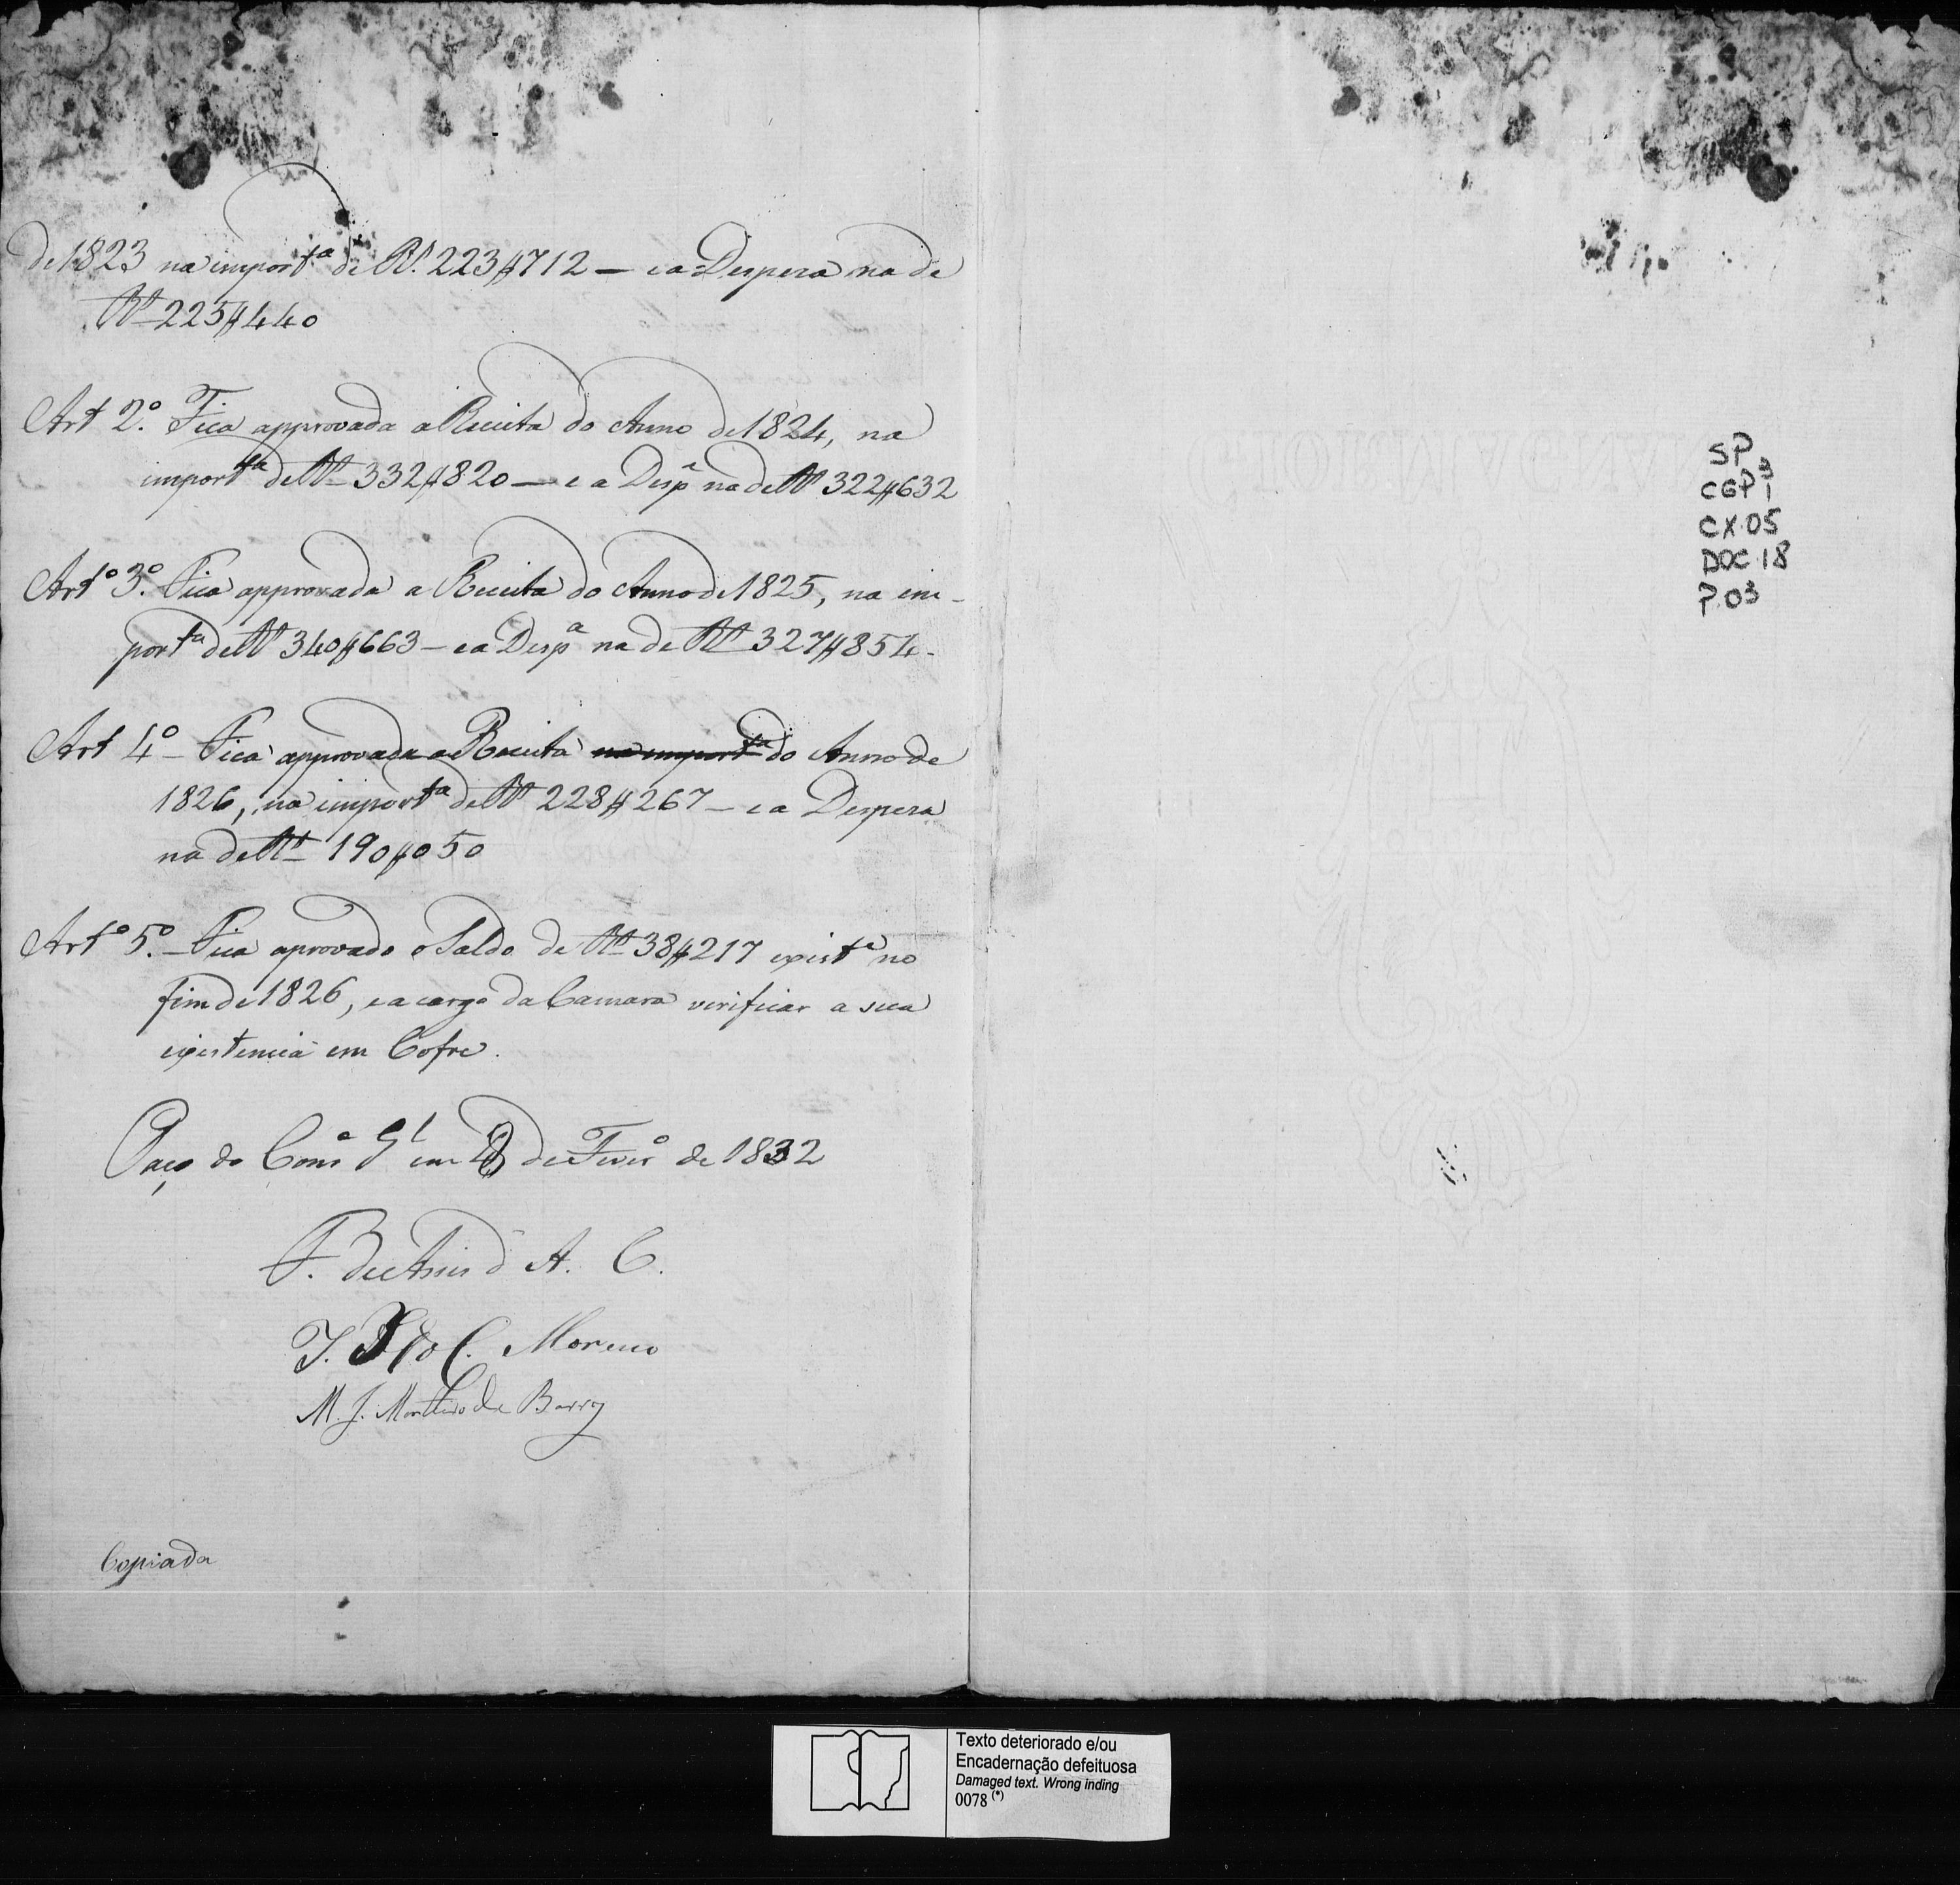 de 1823 na import.ª de Rs. 223$712 — e a Despeza na de
Rs 225$440
Art 2.º Fica approvada a Receita do Anno de 1824, na
import.ª de Rs 332$820 — e a Desp.ª na de Rs 322$632
Artº 3.º Fica approvada a Receita do Anno de 1825, na im-
portª de Rs 340$663 — e a Desp.ª na de Rs 327$854.
Art 4º — Fica approvada a Receita na importª do Anno de
1826, na importª de Rs 228$267 — e a Despeza
na de Rs 190$050
Artº 5.º — Fica aprovado o Saldo de Rs 38$217 existe no
fim de 1826, e a cargo da Camara verificar a sua
existencia em Cofre.
Paço do Consº Gl em de Fevrº de 1832
F. de Assis A. C.
J. C. Moreno
M. J. Monteiro de Barros
Copiada
SP
CGP 3
1
CX.05
DOC.18
P.03
Texto deteriorado e/ou
Encadernação defeituosa
Damaged text. Wrong inding
0078 (*)